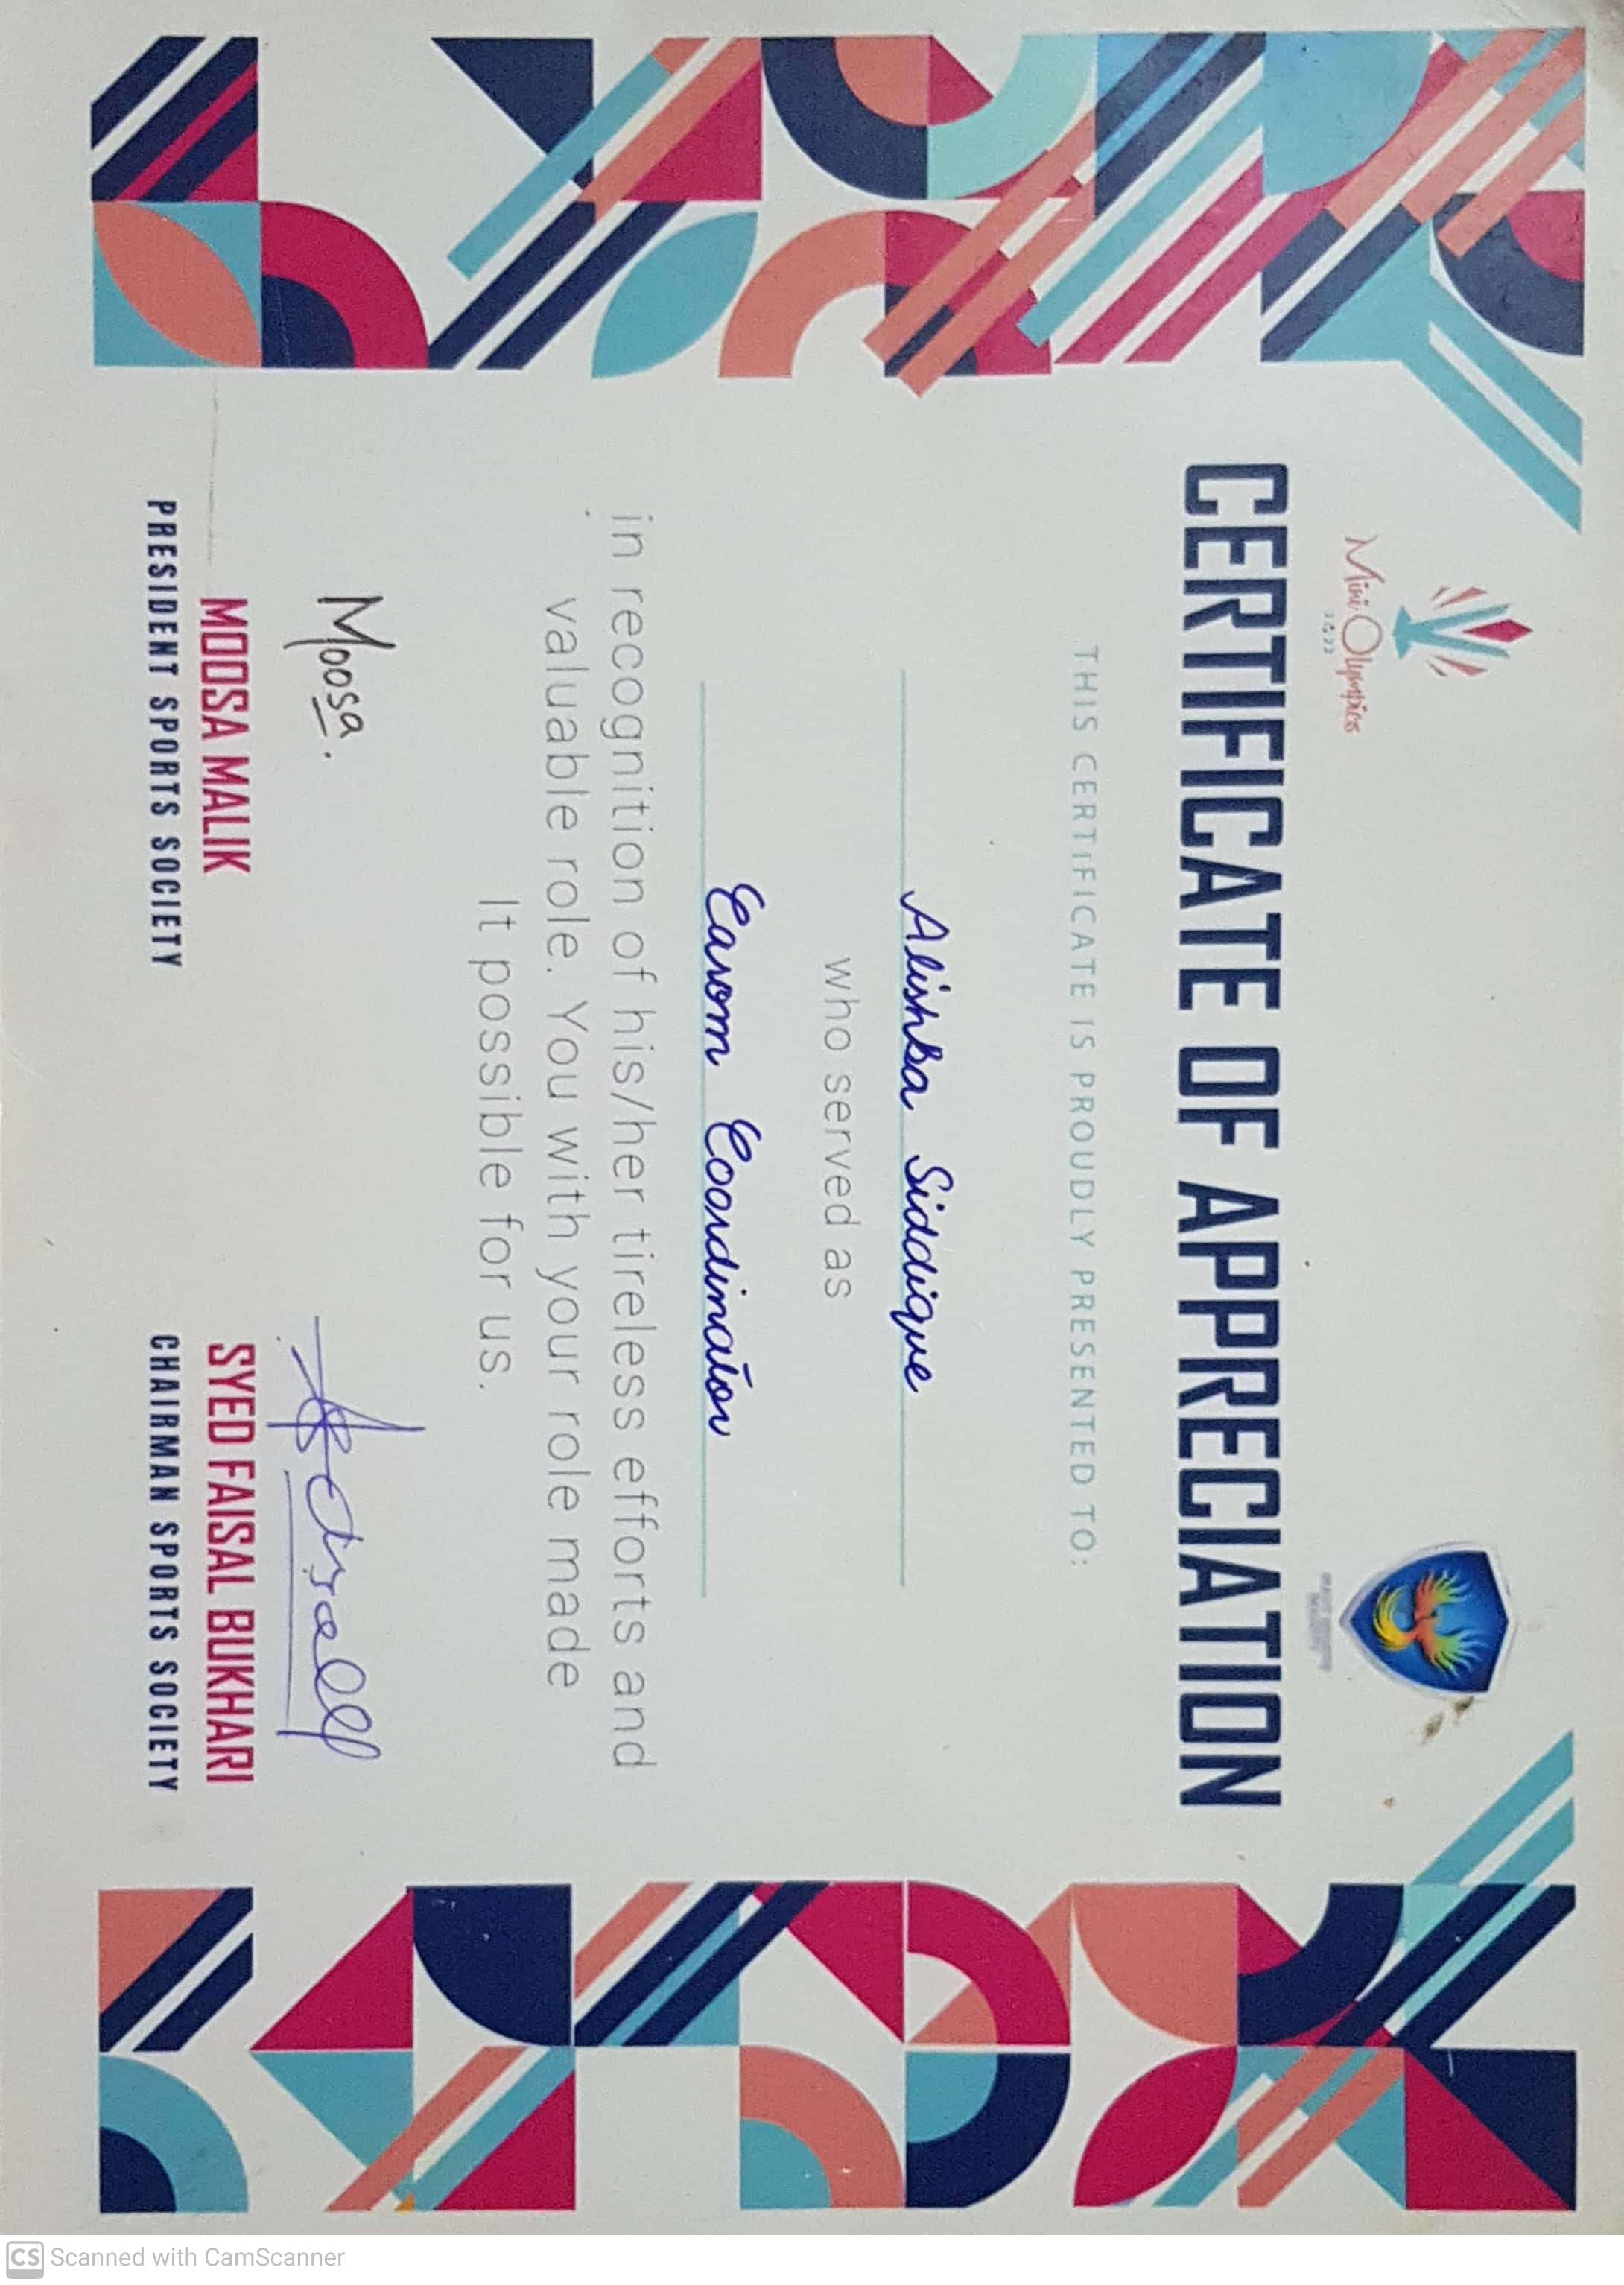 Mini Olympics
2022
CERTIFICATE OF APPRECIATION
THIS CERTIFICATE IS PROUDLY PRESENTED TO:
Alishba Siddique
who served as
Carrom Coordinator
in recognition of his/her tireless efforts and
valuable role. You with your role made
It possible for us.
Moosa.
MOOSA MALIK
PRESIDENT SPORTS SOCIETY
SYED FAISAL BUKHARI
CHAIRMAN SPORTS SOCIETY
CS Scanned with CamScanner